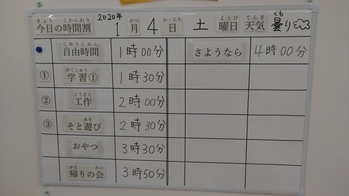 きょう じかんわり
今日の時間割
2020年
1月4日
がつ にち
土曜日
ようび
天気
てんき
曇り
くも
じゆうじかん
自由時間 1時00分
さようなら 4時00分
① 学習① 1時30分
がくしゅう
② 工作 2時00分
こうさく
③ そと遊び 2時30分
あそ
おやつ 3時30分
帰りの会 3時50分
かえ かい